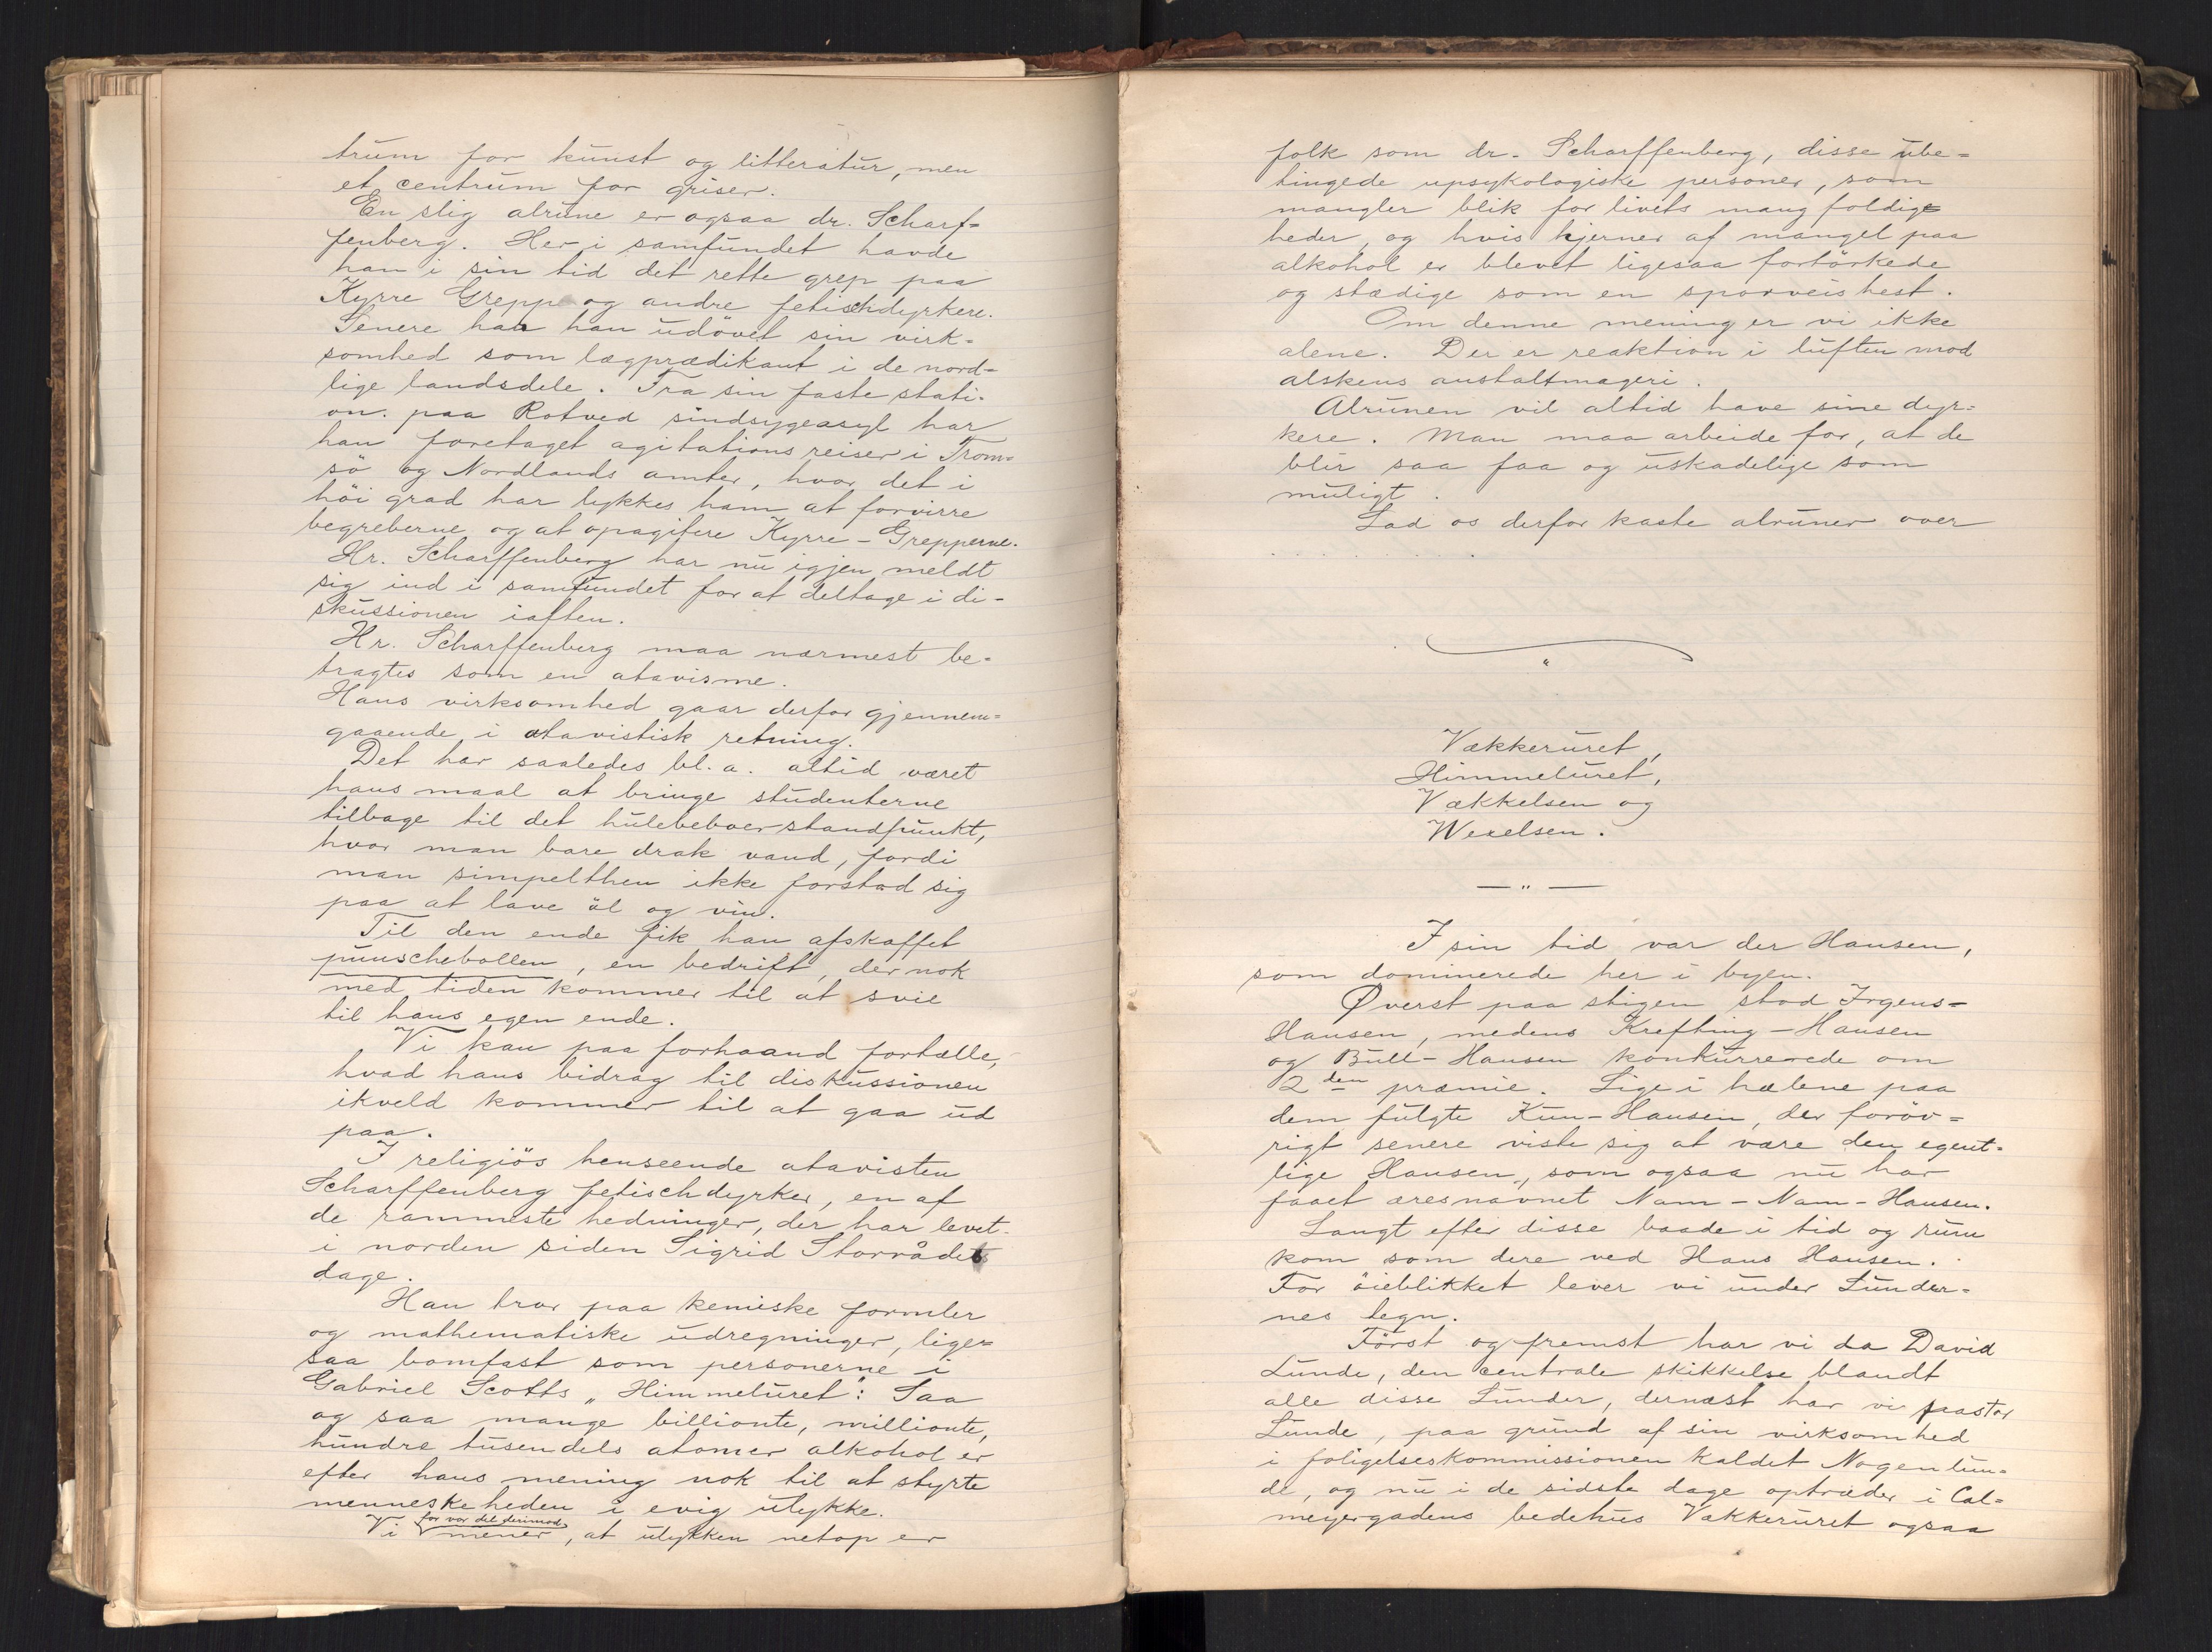 trum for kunst og litteratur, men
et centrum for griser.
En slig alrune er ogsaa dr. Scharf=
fenberg. Her i samfundet havde
han i sin tid det rette grep paa
Kyrre Greppe og andre fetischdyrkere.
Senere har han udövet sin virk=
somhed som lægprædikant i de nord=
lige landsdele. Fra sin faste stati-
on. paa Rotved sindsygeasyl har
han foretaget agitationsreiser i Trom=
sö og Nordlands amter, hvor det i
höi grad har lykkes ham at forvirre
begreberne og at opagitere Kyrre-Grepperne.
Hr. Scharffenberg har nu igjen meldt
sig ind i samfundet for at deltage i di-
skussionen iaften.
Hr. Scharffenberg maa nærmest be-
tragtes som en atavisme.
Hans virksomhed gaar derfor gjennem=
gaaende i atavistisk retning.
Det har saaledes bl. a. altid været
hans maal at bringe studenterne
tilbage til det huleboer standpunkt,
hvor man bare drak vand, fordi
man simpelthen ikke forstod sig
paa at lave öl og vin.
Til den ende fik han afskaffet
punschebollen, en bedrift, der nok
med tiden kommer til at svie
til hans egen ende.
Vi kan paa forhaand fortælle,
hvad hans bidrag til diskussionen
ikveld kommer til at gaa ud
paa.
I religiös henseende atavisten
Scharffenberg fetischdyrker, en af
de rammeste hedninger, der har levet
i norden siden Sigrid Storrådes
dage.
Han tror paa kemiske formler
og mathematiske udregninger, lige=
saa bomfast som personerne i
Gabriel Scotts „Himmeluret": Saa
og saa mange billionte, millionte,
hundre tusendels atomer alkohol er
efter hans mening nok til at styrte
menneskeheden i evig ulykke.
Vi for vor del derimod mener, at ulykken netop er
folk som dr. Scharffenberg, disse ube=
tingede upsykologiske personer, som
mangler blik for livets mangfoldig=
heder, og hvis hjerner af mangel paa
alkohol er blevet ligesaa fortörkede
og stædige som en sporveishest.
Om denne mening er vi ikke
alene. Der er reaktion i luften mod
alskens anstaltmageri.
Alrunen vil altid have sine dyr=
kere. Man maa arbeide for, at de
blir saa faa og uskadelige som
muligt.
Lad os derfor kaste alruner over
. . . . . . . . . .
Vækkeruret,
Himmeluret,
Vækkelsen og
Wexelsen.
— " —
I sin tid var der Hansen,
som dominerede her i byen.
Øverst paa stigen stod Irgens=
Hansen, medens Krefting-Hansen
og Bull-Hansen konkurrerede om
2den præmie. Lige i hælene paa
dem fulgte Kun-Hansen, der foröv=
rigt senere viste sig at være den egent=
lige Hansen, som ogsaa nu har
faaet æresnavnet Nam-Nam-Hansen.
Langt efter disse baade i tid og rum
kom som dere ved Hans Hansen.
For öieblikket lever vi under Lunder=
nes tegn.
Först og fremst har vi da David
Lunde, den centrale skikkelse blandt
alle disse Lunder, dernæst har vi pastor
Lunde, paa grund af sin virksomhed
i foligelseskommissionen kaldet Nogenlun=
de, og nu i de sidste dage optræder i Cal=
meyergadens bedehus Vækkeruret ogsaa